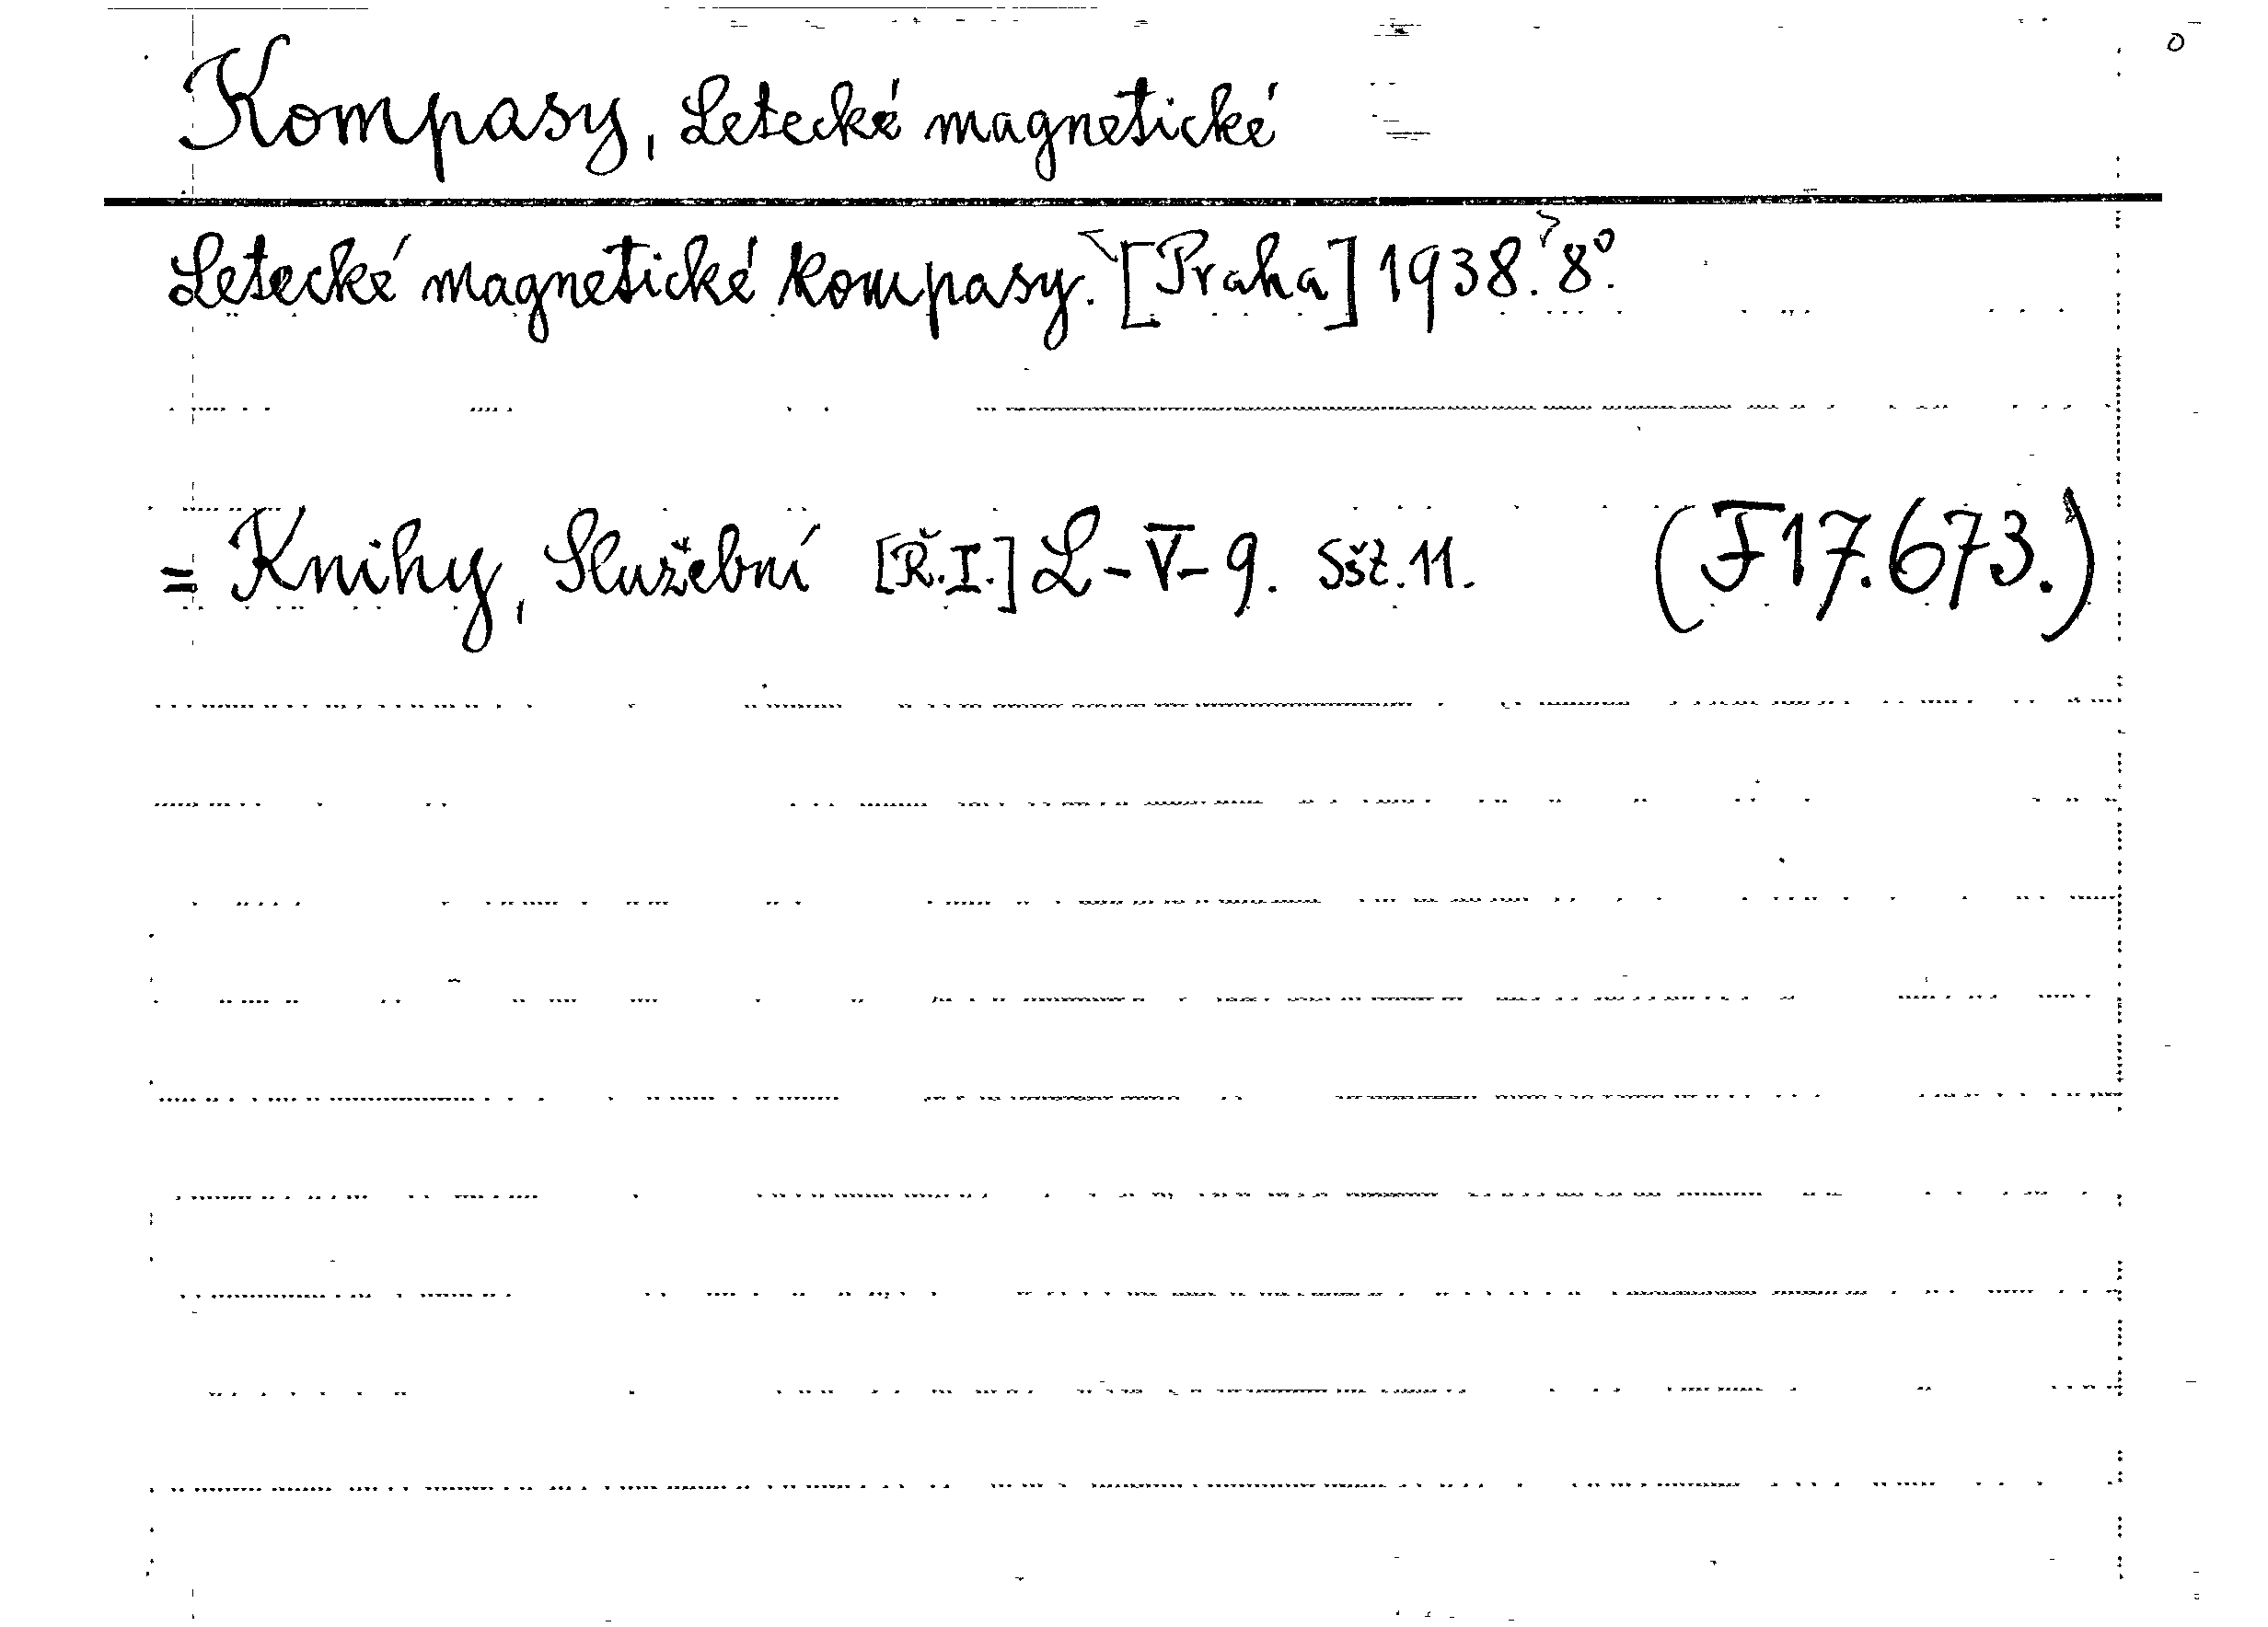 Kompasy, Letecké magnetické
Letecké magnetické kompasy. [Praha] 1938. 8°.
= Knihy, Služební [Ř.I.] L-V-9. Sšt. 11. (F17.673.)